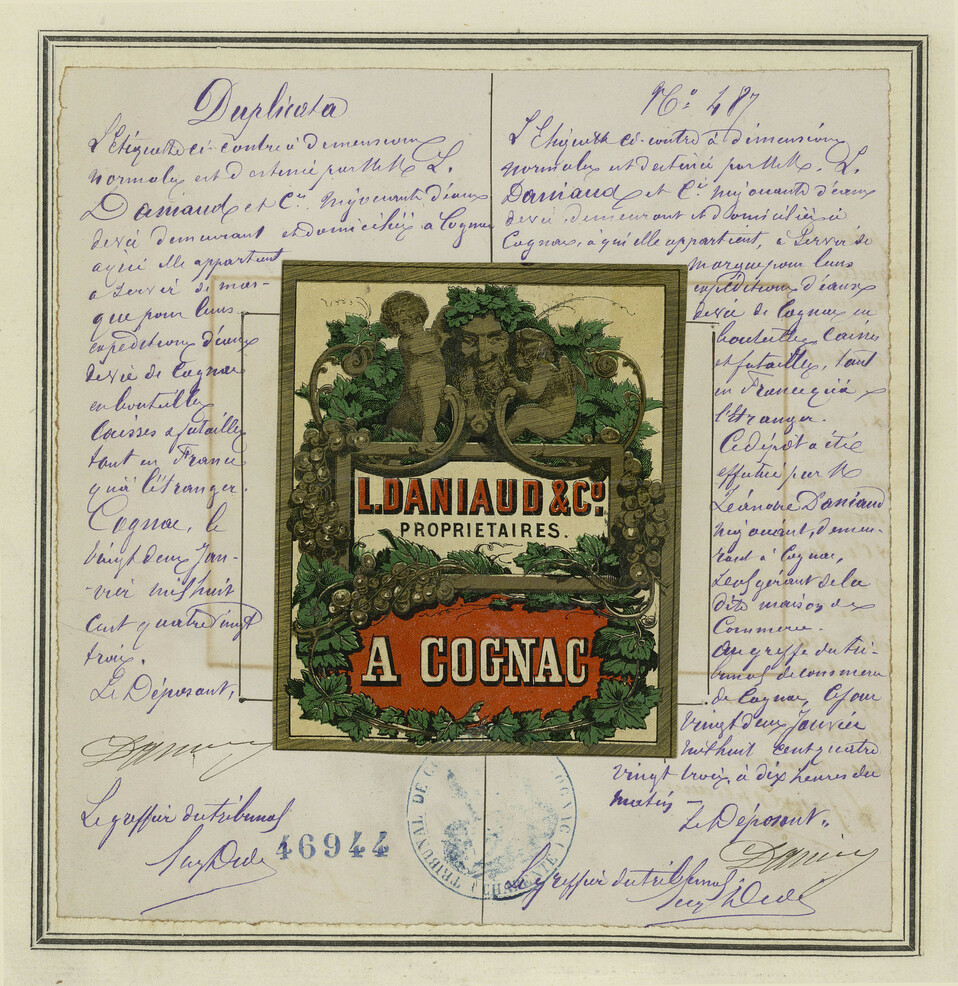 Duplicata
L'étiquette ci-contre à dimensions
normales est destinée par MM. L.
Daniaud et Cie négociants d'eaux
de vie demeurant et domiciliés à Cognac
à qui elle appartient
à servir de mar-
que pour leurs
expéditions d'eaux
de vie de Cognac
en bouteilles
caisses & futailles
tant en France
qu'à l'étranger.
Cognac, le
vingt deux Jan-
-vier mil huit
cent quatre vingt
trois.
Le Déposant,
Le greffier du tribunal
46944
No 487
L'Etiquette ci-contre à dimensions
normales est destinée par MM. L.
Daniaud et Cie négociants d'eaux
de vie, demeurant et domiciliés à
Cognac, à qui elle appartient, à servir de
marque pour leurs
expéditions d'eaux
de vie de Cognac en
bouteilles, caisses
et futailles, tant
en France qu'à
l'étranger.
Ce dépôt a été
effectué par M
Léandre Daniaud
négociant, demeu-
rant à Cognac,
seul gérant de la
dite maison de
Commerce.
Au greffe du tri-
bunal de commerce
de Cognac, ce jour
vingt deux Janvier
mil huit cent quatre
vingt trois à dix heures du
matin
Le Déposant.
Le greffier du tribunal
L. DANIAUD & Co.
PROPRIETAIRES.
A COGNAC
TRIBUNAL DE